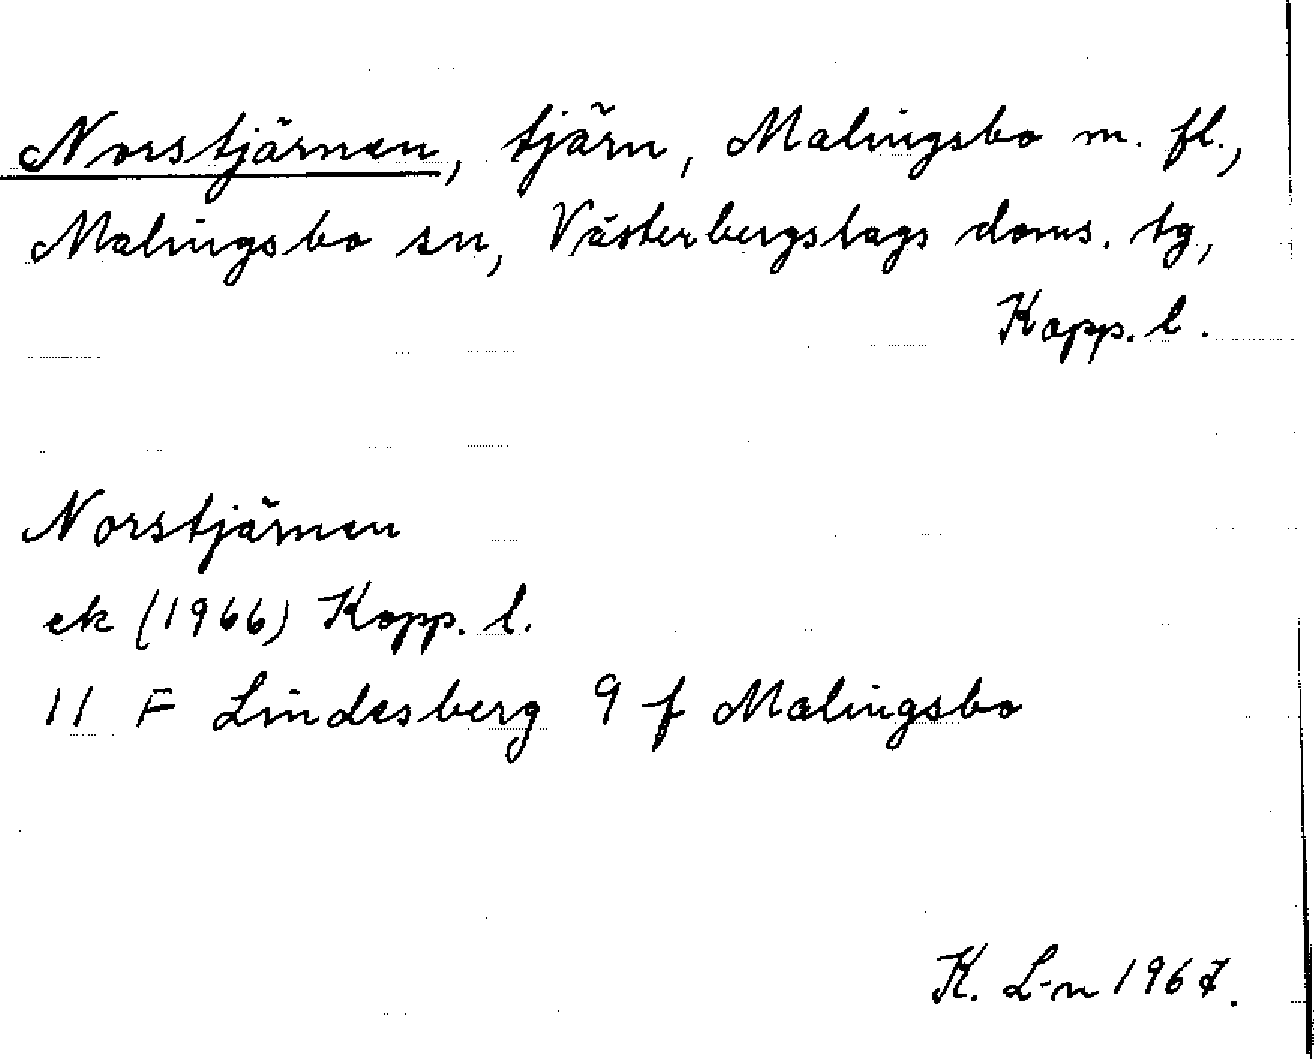 Norstjärnen, tjärn, Malingsbo m. fl.,
Malingsbo sn, Västerbergslags doms. tg,
Kopp. l.
Norstjärnen
ek (1966) Kopp. l.
11 F Lindesberg 9 f Malingsbo
K. L-n 1967.